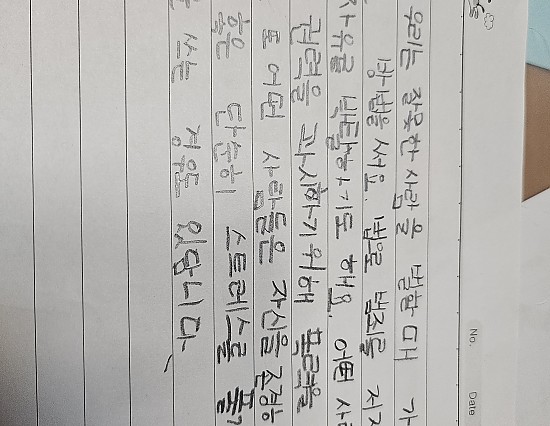 No.
Date
우리는 잘못한 사람을 벌할 때 가
방법을 써요. 법으로 범죄를 저지
자유를 박탈하기도 해요. 어떤 사
권력을 과시하기위해 폭력을
또 어떤 사람들은 자신을 존경
혹은 단순히 스트레스를 풀기
쓰는 경우도 있답니다.